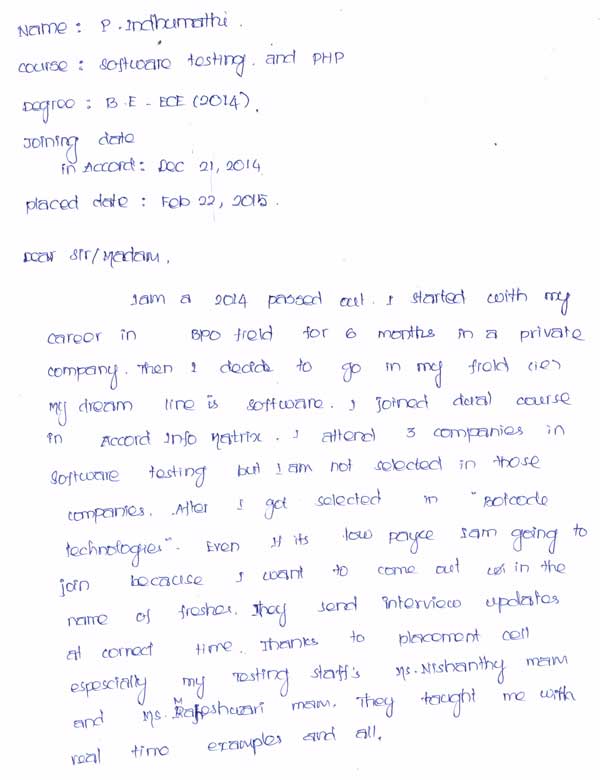 Name : P. Indhumathi.
course : software testing. and PHP
Degree : B.E - ECE (2014).
Joining date
in Accord : Dec 21, 2014
placed date : Feb 22, 2015.
Dear Sir/Madam,
I am a 2014 passed out. I started with my
career in BPO field for 6 months in a private
company. Then I decide to go in my field (ie)
My dream line is software. I joined dual course
in Accord Info Matrix. I attend 3 companies in
software testing but I am not selected in those
companies. After I got selected in "Botcode
technologies". Even If its low payce I am going to
join because I want to come out in the
name of fresher. They send interview updates
at correct time. Thanks to placement cell
especially my Testing staff's Ms. Nishanthy mam
and Ms. mam. They taught me with
real time examples and all.